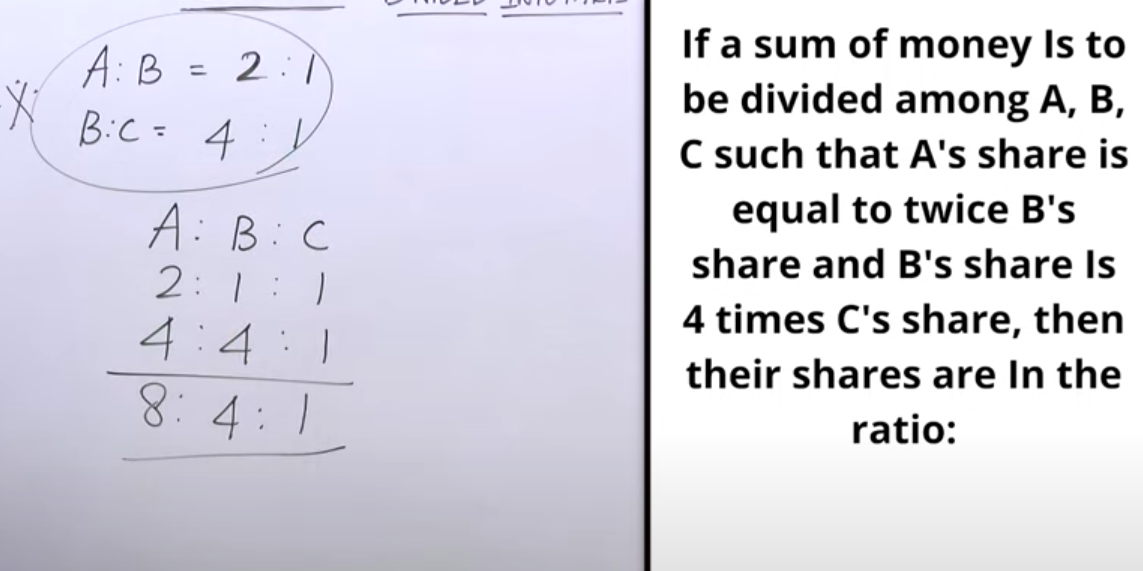 A : B = 2 : 1
B : C = 4 : 1
A : B : C
2 : 1 : 1
4 : 4 : 1
8 : 4 : 1
If a sum of money Is to
be divided among A, B,
C such that A's share is
equal to twice B's
share and B's share Is
4 times C's share, then
their shares are In the
ratio: